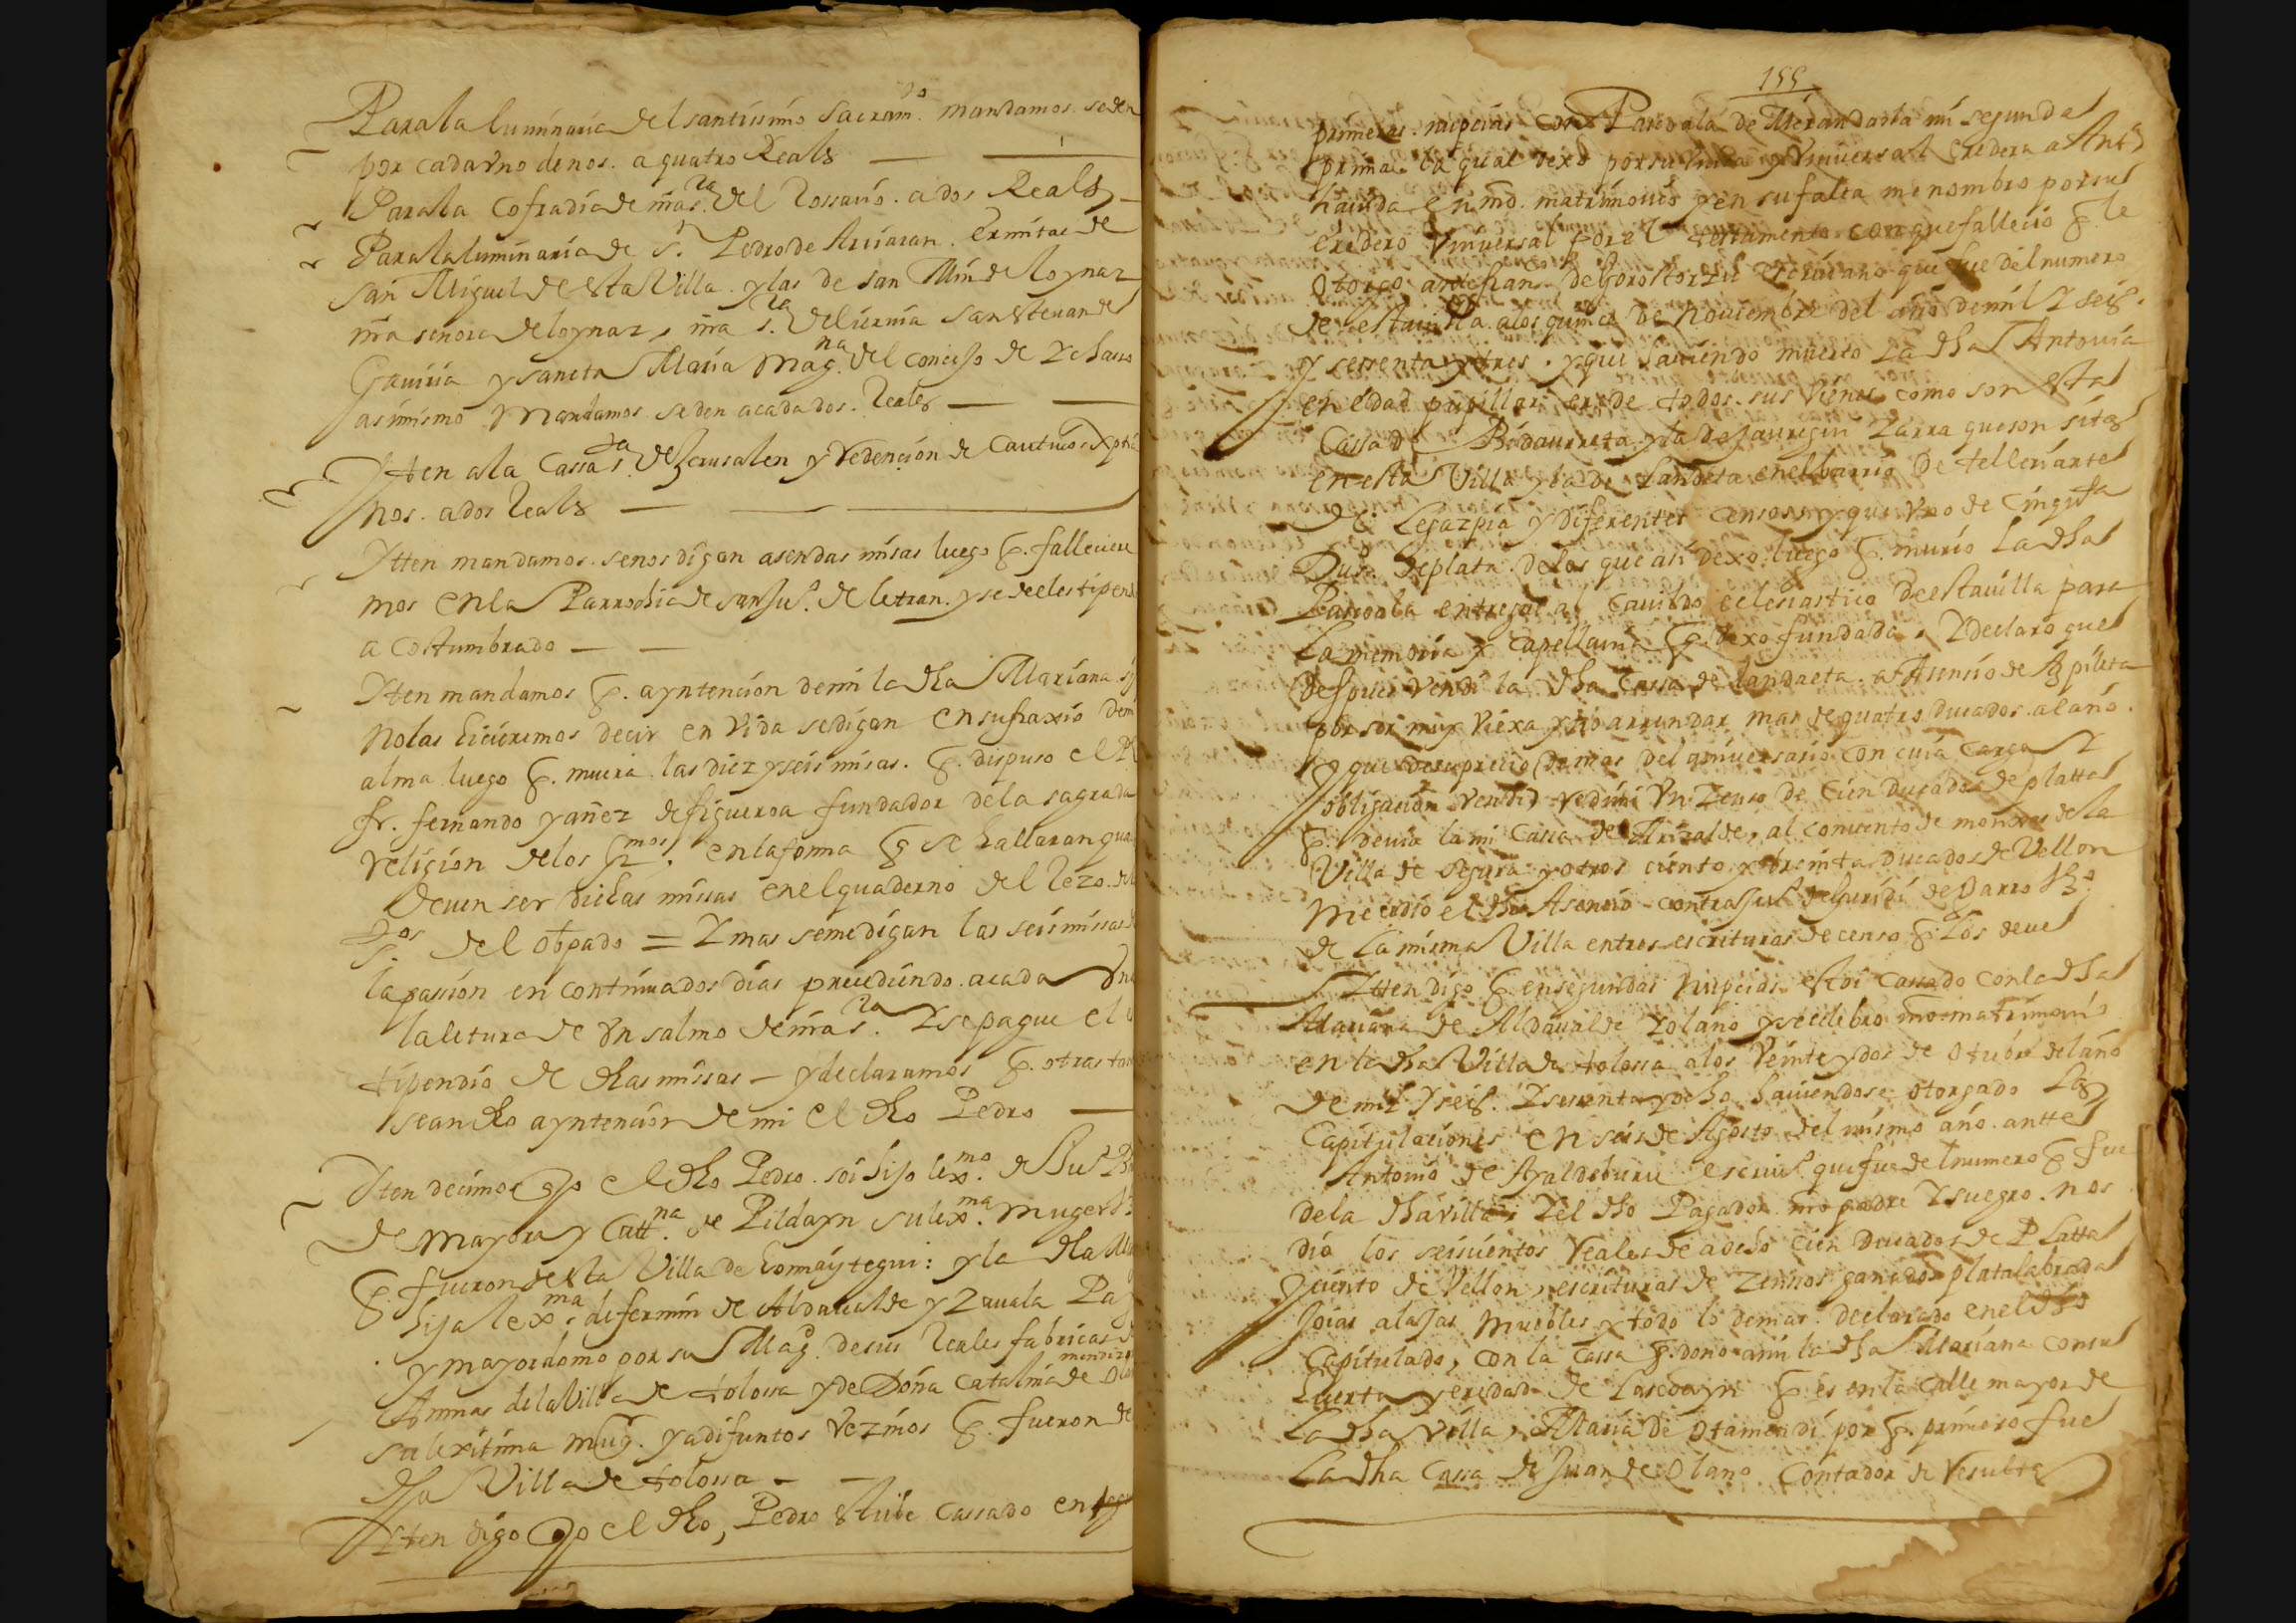 Para la luminaria del santissimo sacram.to mandamos se den
por cada vno de nos. a quatro Reales
Para la cofradia de nra s.ra del Rossario. a dos Reales
Para la luminaria de s.n Pedro de Ariaran. Ermitas de
san Miguel de esta Villa. y las de san Min de loynaz
nra señora de loynaz, nra s.ra de liernia san esteuan de
Gauiria y sancta Maria Mag.na del concejo de
asimismo Mandamos se den a cada dos. Reales
Itten a la Cassa s.ta de Jerusalen y Redencion de Cautiuos Xptia
nos. a dos Reales
Itten mandamos. se nos digan a sendas misas luego q. falleciere
mos en la Parrochia de san Ju.o de letran. y se de el estipend
a costumbrado
Itten mandamos q. a yntencion de mi la dha Mariana si
no las hicieremos decir en vida se digan en sufraxio de mi
alma luego q. muera las diez y seis misas. q. dispuso el P
fr. fernando yañez de figueroa fundador de la sagrada
religion de los . en la forma q se hallaran qua
deuen ser dichas missas en el quaderno del Rezo. de
s.dos del obpado = Y mas se me digan las seis missas
la passion en continuados dias precediendo. a cada vna
la letura de vn salmo de nra s.ra Y se pague el
tipendio de dhas missas — y declaramos q. otras tan
sean dho a yntencion de mi el dho Pedro
Itten decimos yo el dho Pedro. soi hijo lex.mo de Ju.o
de Mayora y Catt.na de Pildayn su lex.ma muger
q. fueron de esta Villa de hormaiztegui: y la dha M
hija lex.ma de fermin de Aldaualde y Zauala Pa
y mayordomo por su Mag.d de sus Reales fabricas
Armas de la Villa de tolossa y de Dona Catalina de
mendizo
su lexitima mug.r ya difuntos vezinos q. fueron de
dha Villa de tolossa
Itten digo yo el dho, Pedro estube cassado en
155
primeras nupcias con Pascoala de Mirandaola mi segunda
prima. la qual dexo por su vnica y vniversal eredera a Ant.a
hauida en nro. matrimonio y en su falta me nombro por su
eredero vniuersal por el testamento con que fallecio q. le
otorgo ante fran.co de Gorostorzu escriuano que fue del numero
de esta villa. a los quince de nouiembre del año de mil y seis.
y sessenta y tres. y que hauiendo muerto la dha Antonia
en edad pupillar erede todos. sus vienes como son esta
Cassa de Bidaurreta y la de Jauregui Zarra que son sitas
en esta Villa y la de Landeta en el barrio de telleriarte
de Legazpia y diferentes censos y que vno de cinq.ta
Du.s de plata. de los que asi dexo. luego q. murio la dha
Pascoala entregue al Cauildo eclesiastico de esta villa para
la memoria y capellania q. dexo fundada. Y declaro que
despues vendi la dha Cassa de landaeta. a Asensio de Azpileta
por ser muy viexa y no arrendar mas de quatro ducados al año.
Y que de su precio (demas del aniuersario con cuia carga y
obligacion vendi) redimi vn zenso de cien Ducados de platta
q. deuia la mi Cassa de Arizalde, al conuento de monxas de la
Villa de Segura y otros ciento y treinta ducados de Vellon
me cedio el dho Asensio contra Ju.o de Guridi de Barro
de la misma Villa en tres escrituras de censo q. los deue
Itten digo q. en segundas nupcias estoi cassado con la dha
Mariana de Aldaualde y olano y se celebro nro matrimonio
en la dha Villa de tolossa a los veinte y dos de otubre del año
de mil y seis. y sessenta y ocho hauiendose otorgado las
Capitulaciones en seis de Agosto del mismo año. antte
Antonio de Ayaldeburu escriu.o que fue del numero q. fue
de la dha villa. Y el dho Pagador nro padre y suegro. nos
dio los seiscientos reales de a ocho cien Ducados de Platta
y ciento de Vellon, escrituras de zensos ganados plata labrada
Joias alajas muebles y todo lo demas. declarado en el dho
Capitulado, con la cassa q. dono a mi la dha Mariana con su
huerta y eredad de Lascoayn q. es en la calle mayor de
la dha villa, Maria de otamendi por q. primero fue
la dha Cassa de Juan de olano. Contador de resulta